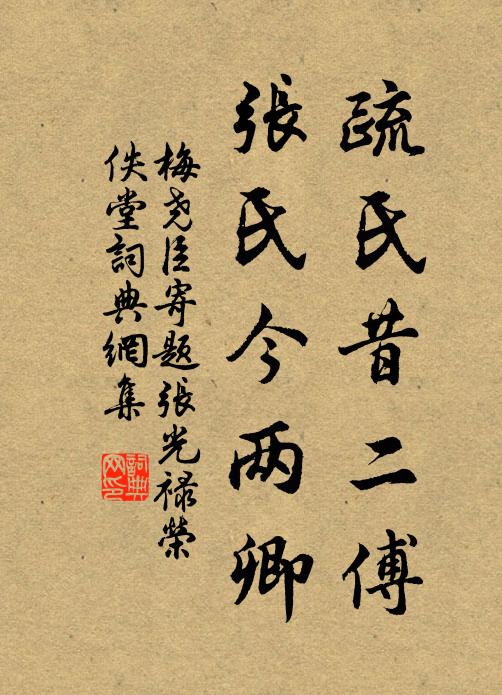 疏氏昔二傅
張氏今两卿
梅尧臣寄题張光禄榮
佚堂詞典網集
詞典
网印